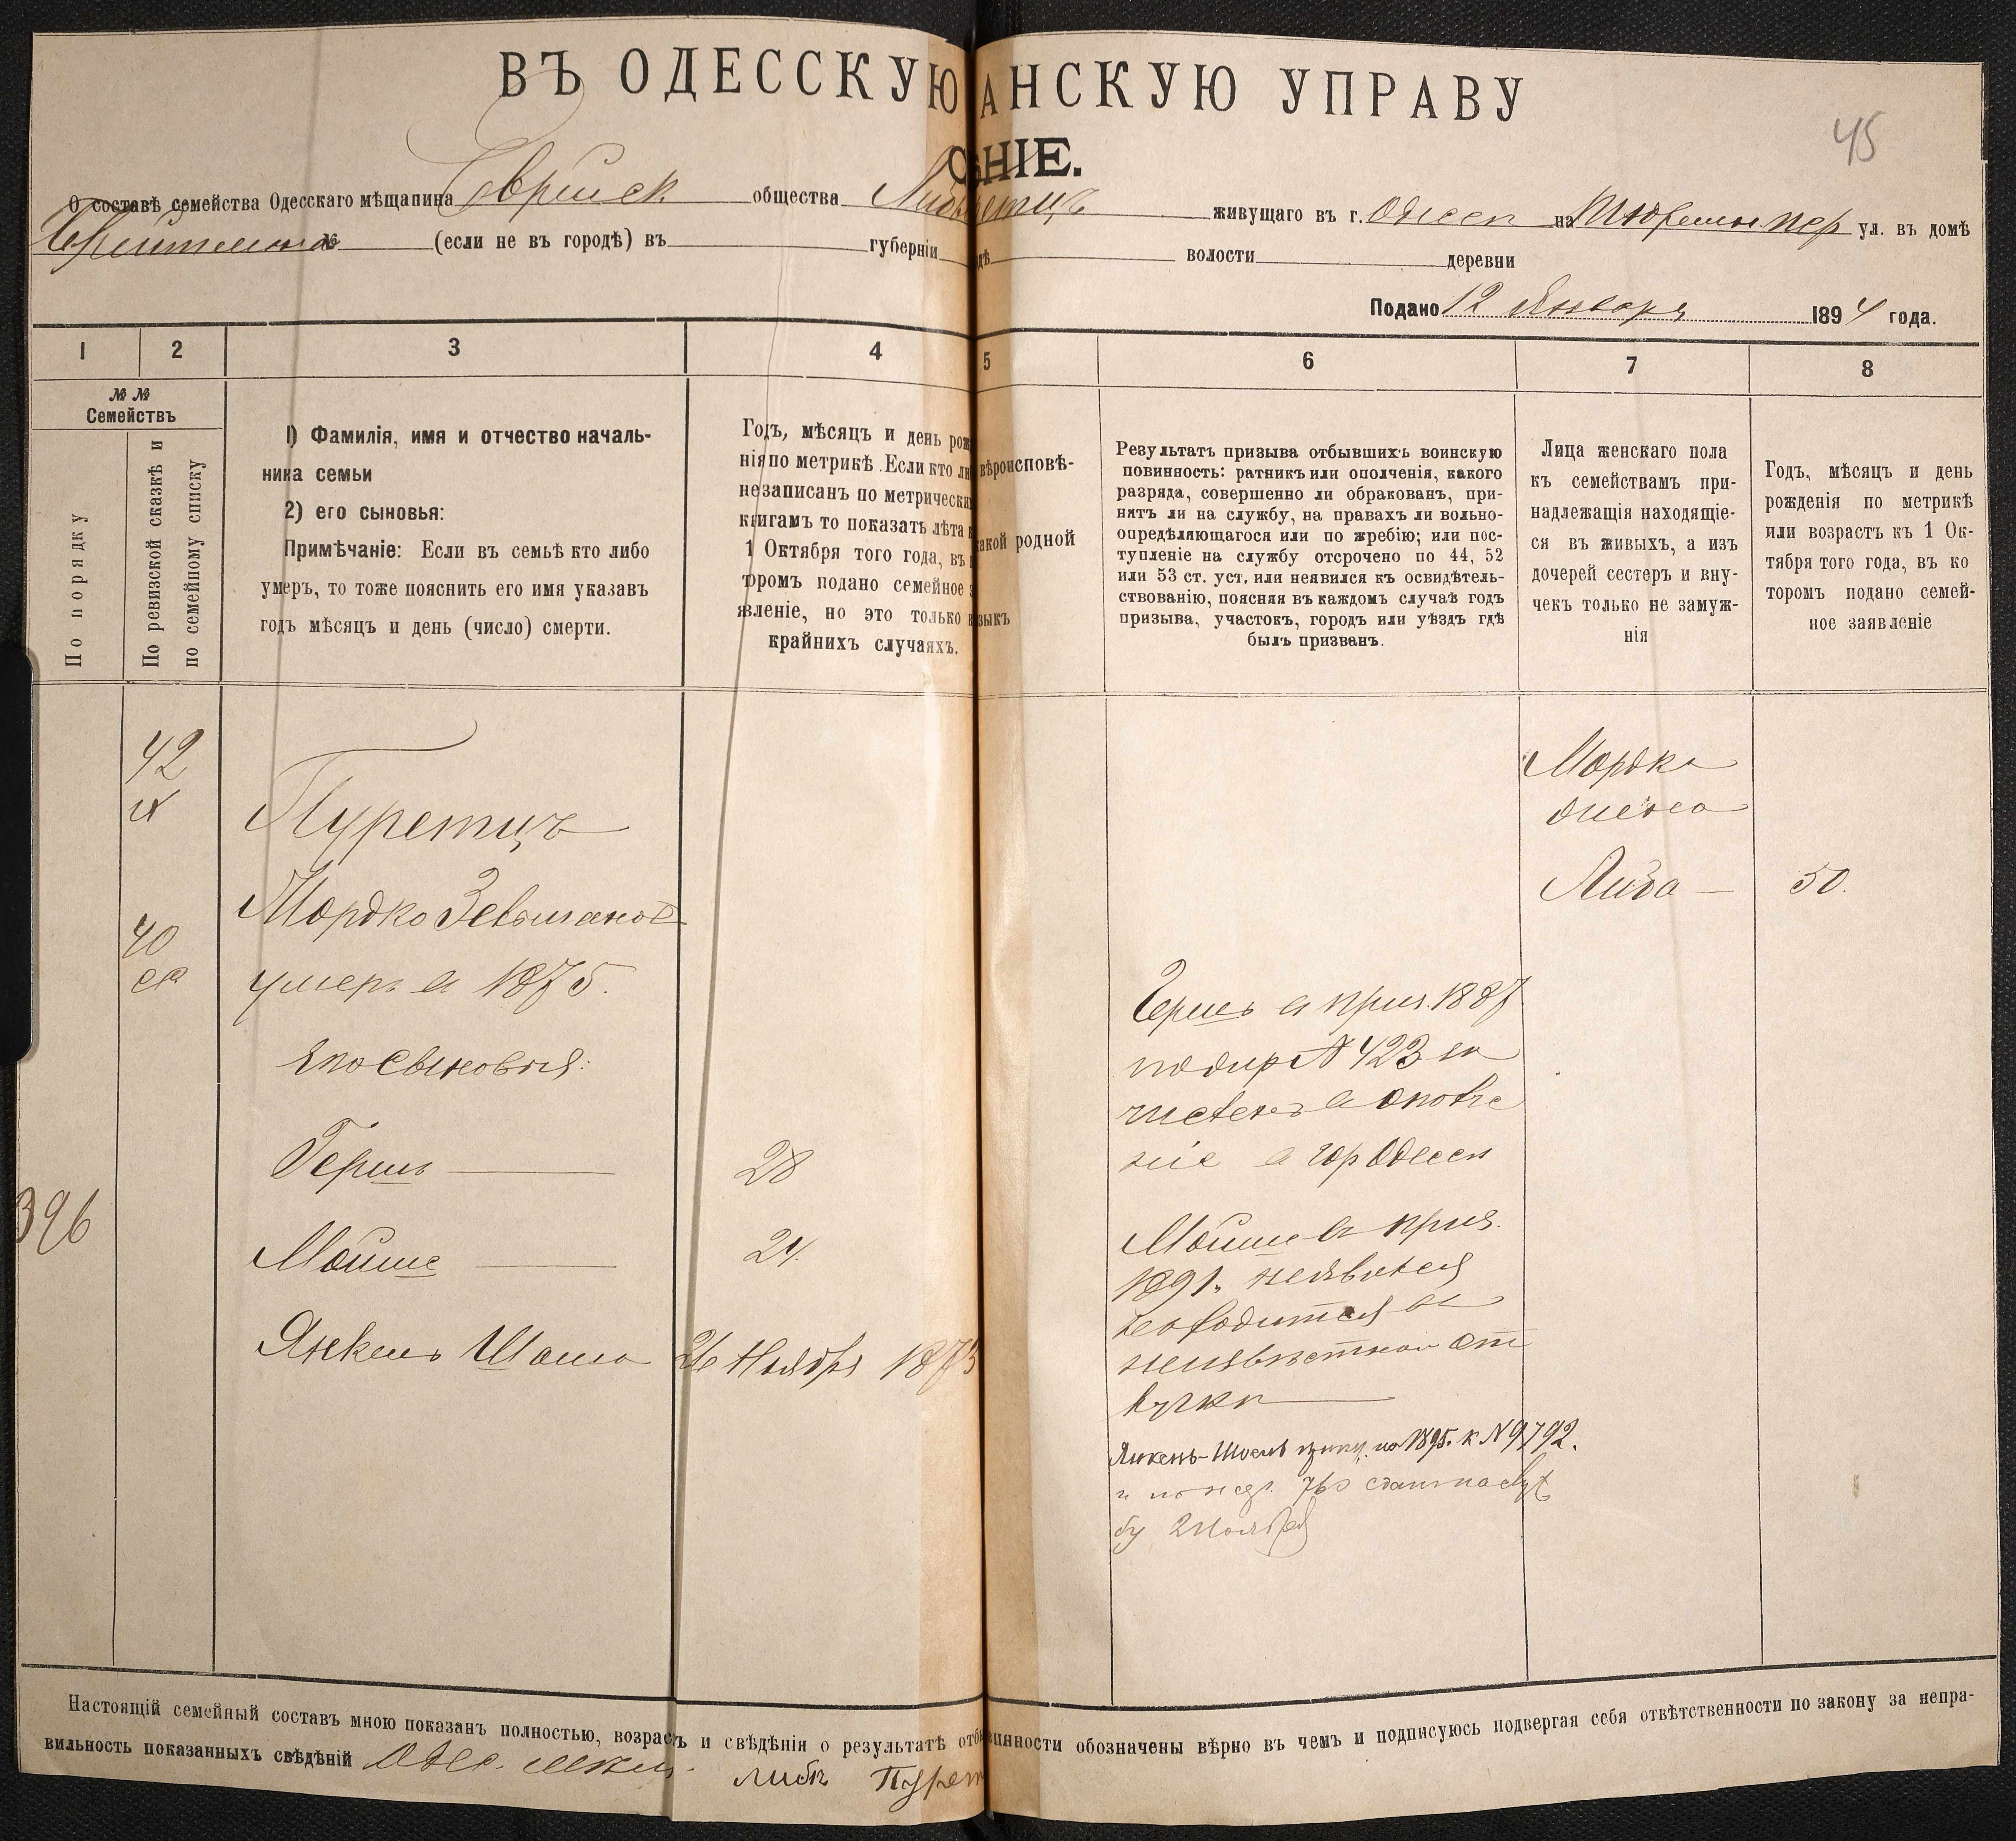 ВЪ ОДЕССКУЮ АНСКУЮ УПРАВУ
НІЕ.
45
О составѣ семейства Одесскаго мѣщанина Еврейск общества живущаго въ г. Одессѣ на Тюремн. пер ул. въ домѣ
№ (если не въ городѣ) въ губерніи дѣ волости деревни
Подано 12 Января 1894 года.
1 2 3 4 5 6 7 8
№ № Семействъ
По порядку
По ревизской сказкѣ и по семейному списку
1) Фамилія, имя и отчество началь-
ника семьи
2) его сыновья:
Примѣчаніе: Если въ семьѣ кто либо
умеръ, то тоже пояснить его имя указавъ
годъ мѣсяцъ и день (число) смерти.
Годъ, мѣсяцъ и день рож
нія по метрикѣ. Если кто ли
незаписанъ по метрически
книгамъ то показать лѣта к
1 Октября того года, въ к
торомъ подано семейное з
явленіе, но это только в
крайнихъ случаяхъ.
вѣроисповѣ-
акой родной
зыкъ
Результатъ призыва отбывшихъ воинскую
повинность: ратникъ или ополченія, какого
разряда, совершенно ли обракованъ, при-
нятъ ли на службу, на правахъ ли вольно-
опредѣляющагося или по жребію; или пос-
тупленіе на службу отсрочено по 44, 52
или 53 ст. уст. или неявился къ освидѣтель-
ствованію, поясняя въ каждомъ случаѣ годъ
призыва, участокъ, городъ или уѣздъ гдѣ
былъ призванъ.
Лица женскаго пола
къ семействамъ при-
надлежащія находящіе-
ся въ живыхъ, а изъ
дочерей сестеръ и вну-
чекъ только не замуж-
нія
Годъ, мѣсяцъ и день
рожденія по метрикѣ
или возрастъ къ 1 Ок-
тября того года, въ ко
торомъ подано семей-
ное заявленіе
42
Пуретцъ
Мордко
умеръ в 1875.
40
его сыновья:
Гершъ 28
396
Мойше 24
Янкель Шоел 26 Ноября 187
Гершъ в приз. 1887
по жер № 423 за
численъ в ополче
ніе в гор Одессѣ
Мойше въ приз.
1891. неявился
находится в
неизвѣстной от
лучкѣ
Янкель-Шоел 1895. к № 9792.
Мордка
жена
Либа 50.
Настоящій семейный составъ мною показанъ полностью, возрастъ и свѣдѣнія о результатѣ отбы инности обозначены вѣрно въ чемъ и подписуюсь подвергая себя отвѣтственности по закону за непра-
вильность показанныхъ свѣдѣній Одес. мѣщ.
Либа Пурет